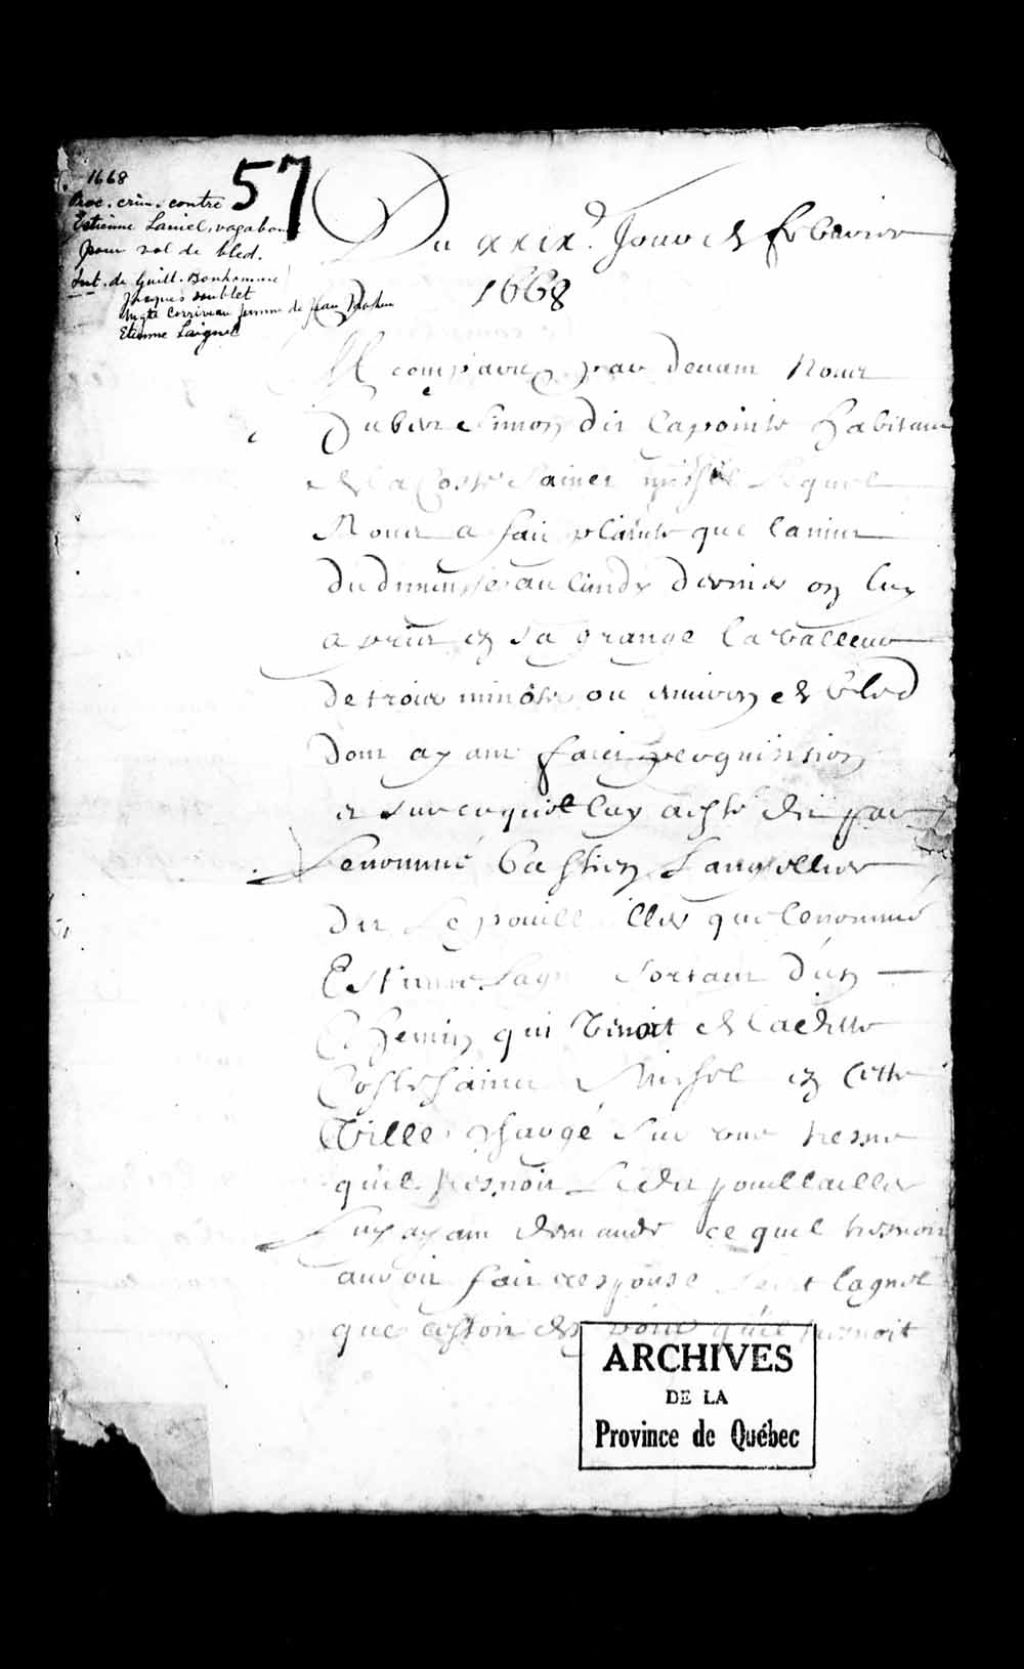 1668
Proc. crim. contre
Estienne Laniel, vagabond
pour vol de bled.
Int. de Guill. Bonhomme
Jacques doublet
Mgte Corriveau femme de Jean
Etienne Laignel
57
Du xxix.e Jour de febvrier
1668
Est comparu par devant Nous
hubert Simon dit Lapointe habitant
de la Coste Sainct Michel Lequel
Nous a fait plainte que la nuict
du dimenche au lundy dernier on luy
a prins en sa grange la valleur
de trois minots ou environ de bled
dont ayant faict perquisition
et sur ce quil luy a esté dit par
Le nommé bastien Langellier
dit Le que le nommé
Estienne sortant d'un
Chemin qui Vinoit de ladicte
Coste Sainct Michel en cette
Ville chargé sur une tresne
qu'il tresnoit Le dit
Luy ayant demandé ce quil tresnoit
auroit fait response lagnel
que cestoit des pois qu'il tresnoit
ARCHIVES
DE LA
Province de Québec